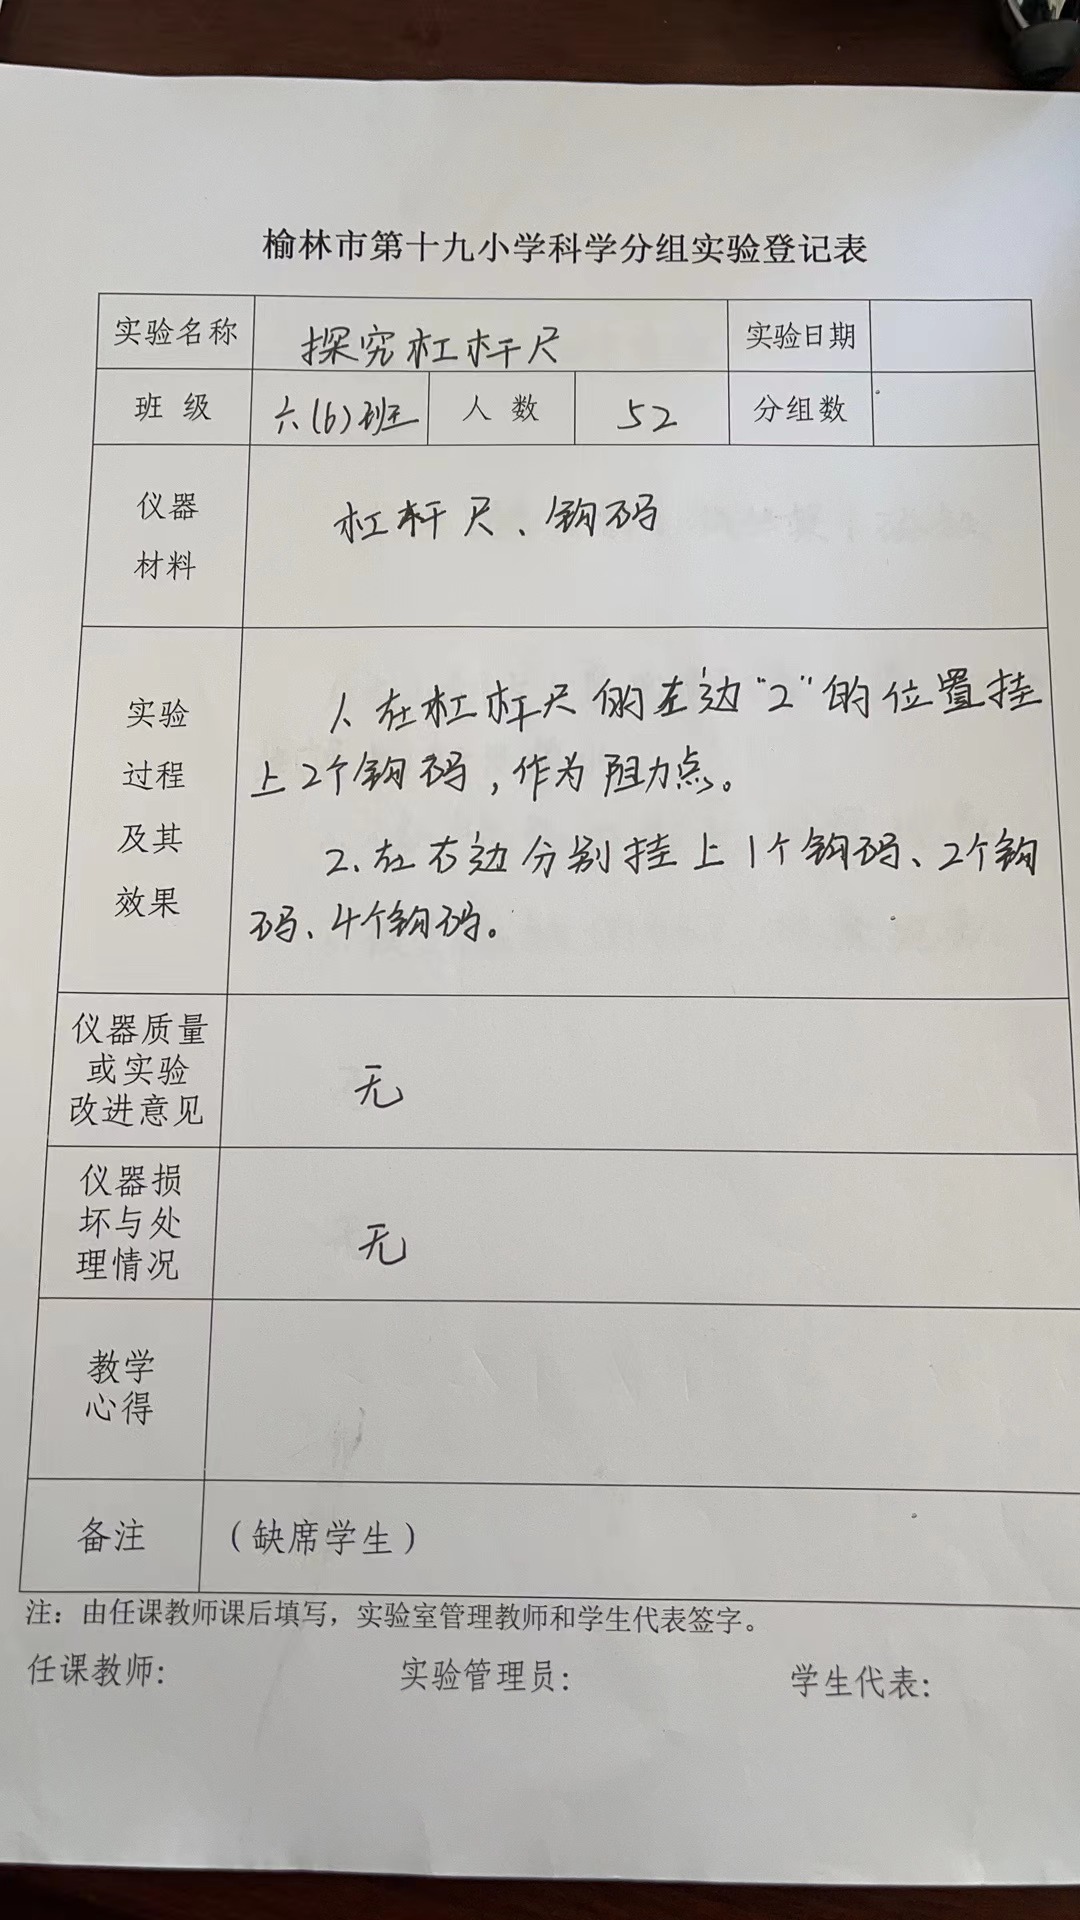 榆林市第十九小学科学分组实验登记表
实验名称 探究杠杆尺 实验日期
班级 六(6)班 人数 52 分组数
仪器
材料
杠杆尺、钩码
实验
过程
及其
效果
1、在杠杆尺的左边“2”的位置挂
上2个钩码，作为阻力点。
2、在右边分别挂上1个钩码、2个钩
码、4个钩码。
仪器质量
或实验
改进意见
无
仪器损
坏与处
理情况
无
教学
心得
备注 （缺席学生）
注：由任课教师课后填写，实验室管理教师和学生代表签字。
任课教师： 实验管理员： 学生代表：